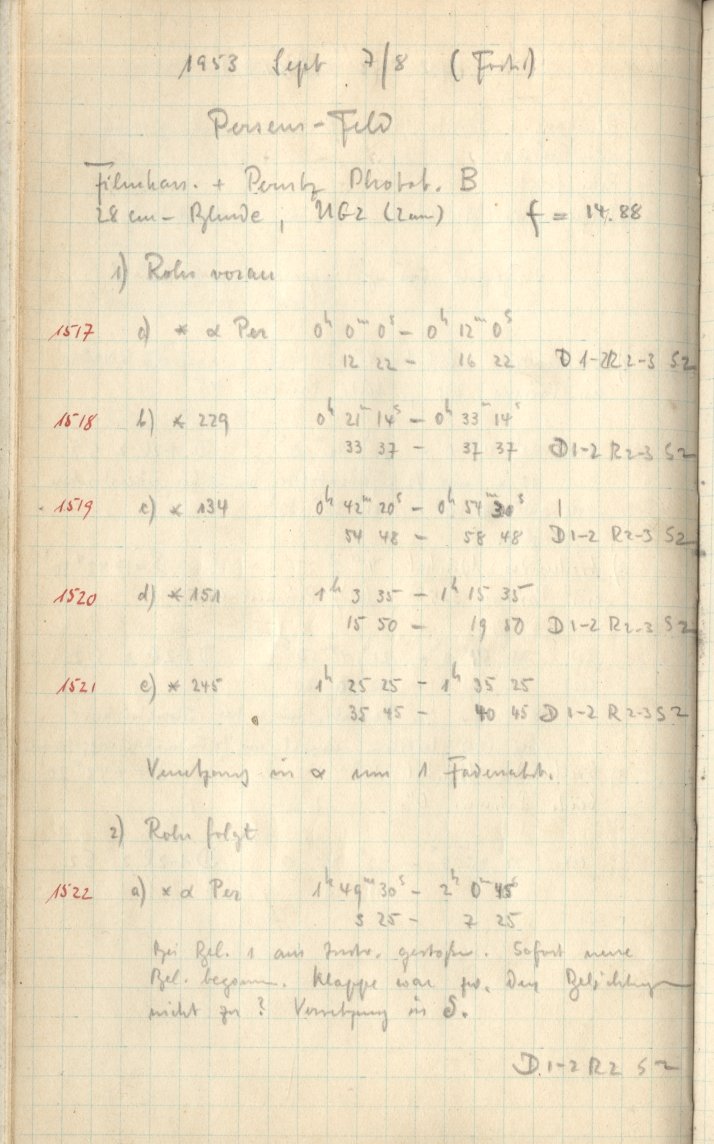 1953 Sept 7/8 (
Perseus-Feld
Filmkass. + Perutz Photot. B
28 cm - Blende, UG2 (2mm) f = 14.88
1) Rohr voran
1517 a) * α Per 0h 0m 0s - 0h 12m 0s
12 22 - 16 22 D 1-2 R 2-3 S2
1518 b) * 229 0h 21m 14s - 0h 33m 14s
33 37 - 37 37 D1-2 R2-3 S2
1519 c) * 134 0h 42m 20s - 0h 54m 30s
54 48 - 58 48 D1-2 R2-3 S2
1520 d) * 151 1h 3 35 - 1h 15 35
15 50 - 19 50 D1-2 R2-3 S2
1521 e) * 245 1h 25 25 - 1h 35 25
35 45 - 40 45 D1-2 R2-3 S2
Versetzung in α um 1 Fadenabst.
2) Rohr folgt
1522 a) * α Per 1h 49m 30s - 2h 0m 45s
3 25 - 7 25
Bei Bel. 1 ans Instr. gestoßen. Sofort neue
Bel. begonn. Klappe war zw. den Belichtungen
nicht zu? Versetzung in δ.
D1-2 R2 S2